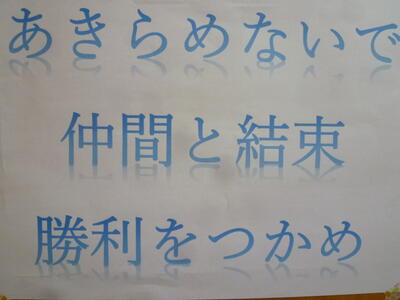 あきらめないで
仲間と結束
勝利をつかめ